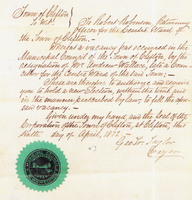 Town of Clifton
To Wit
To Robert Robinson Returning
Officer for the Centre Ward of
the Town of Clifton.
Whereas a vacancy has occurred in the
Municipal Council of the Town of Clifton, by the
resignation of Mr. Andrew Wallace, late a Coun-
cillor for the Centre Ward of the said Town;
These are therefore to authorize and require
you to hold a new Election, within the time and
in the manner prescribed by law, to fill the afore-
said vacancy.
Given under my hand and the Seal of the
Corporation of the Town of Clifton, at Clifton, this
day of April, 1872.
Mayor